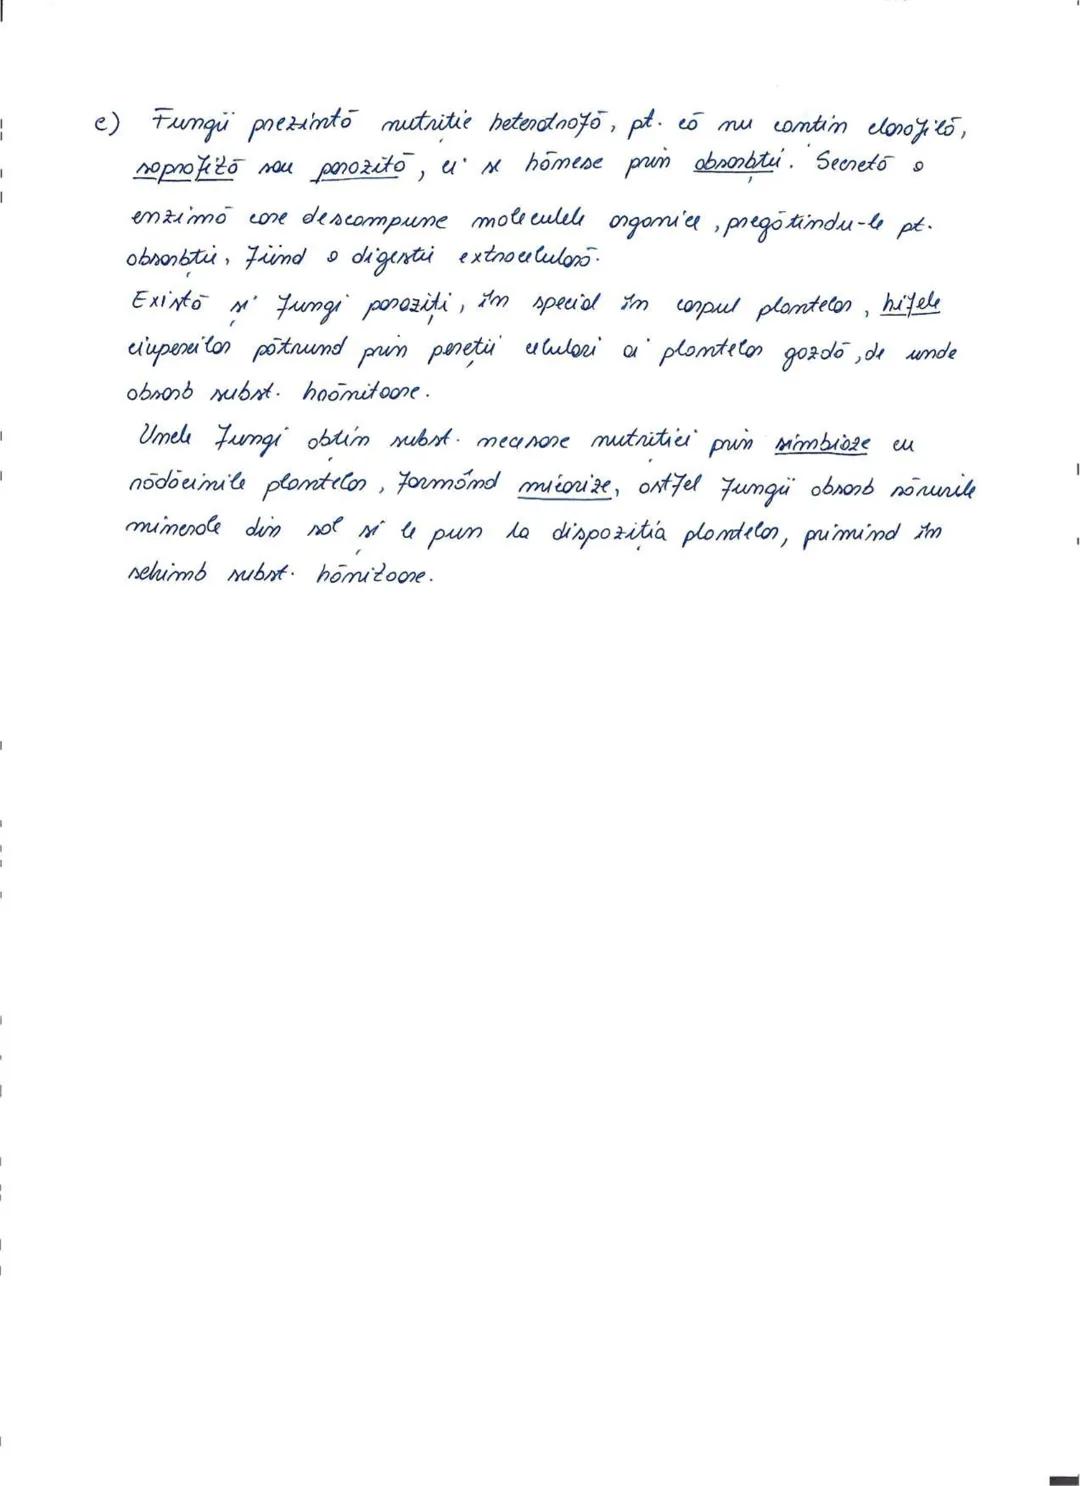 c) Fungii prezintă nutriție heterotrofă, pt. că nu conțin clorofilă,
saprofită sau parazită, ei se hrănesc prin absorbție. Secretă o
enzimă care descompune moleculele organice, pregătindu-le pt.
absorbție, fiind o digestie extracelulară.
Există și fungi paraziți, în special în corpul plantelor, hifele
ciupercilor pătrund prin pereții celulari ai plantelor gazdă, de unde
absorb subst. hrănitoare.
Unele fungi obțin subst. necesare nutriției prin simbioze cu
rădăcinile plantelor, formând micorize, astfel fungii absorb sărurile
minerale din sol și le pun la dispoziția plantelor, primind în
schimb subst. hrănitoare.